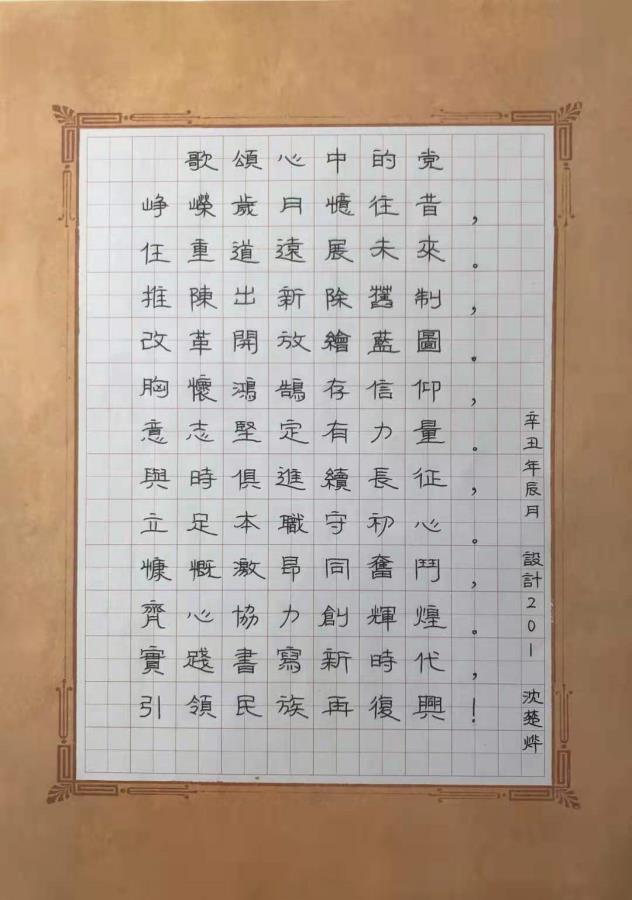 歌頌心中的党
崢嶸歲月憶往昔，
任重道遠展未來。
推陳出新除舊制，
改革開放繪藍圖。
胸懷鴻鵠存信仰，
意志堅定有力量。
與時俱進續長征，
立足本職守初心。
慷慨激昂同奮鬥，
齊心協力創輝煌。
實踐書寫新時代，
引領民族再復興！
辛丑年辰月 設計201 沈楚烨